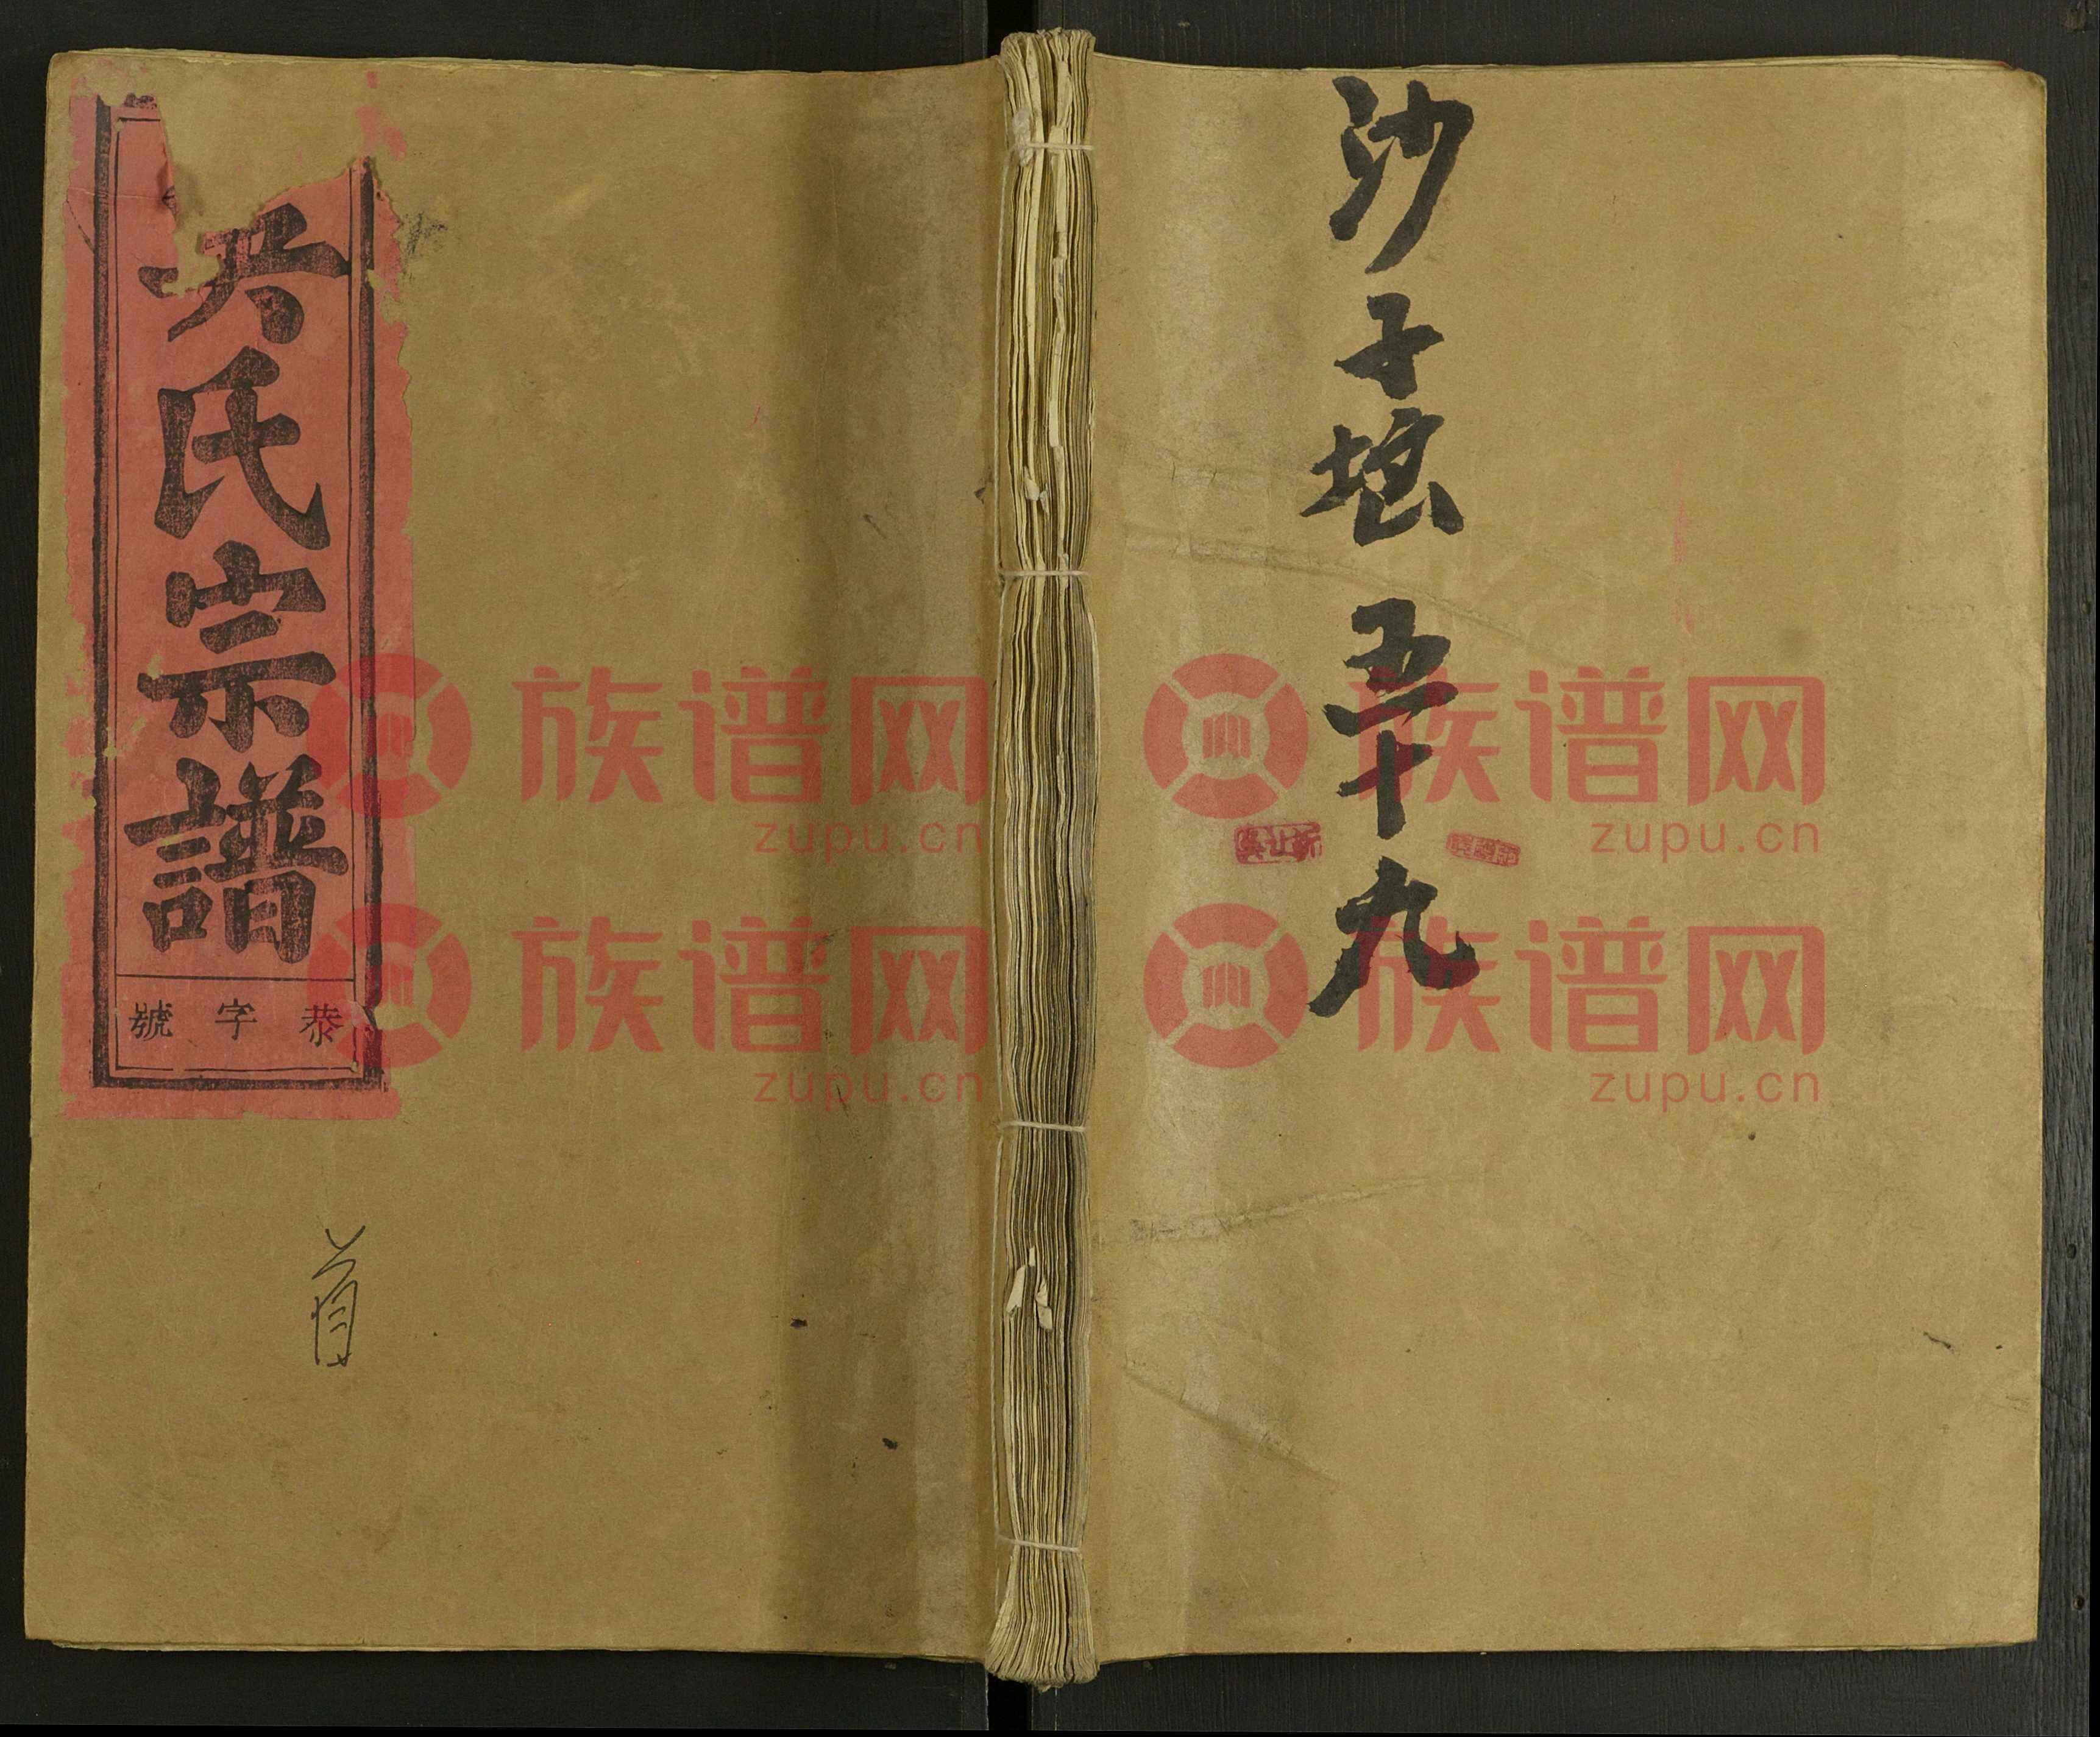 吳氏宗譜
恭字號
首
沙子
五十九
族谱网
zupu.cn
族谱网
zupu.cn
族谱网
zupu.cn
族谱网
zupu.cn